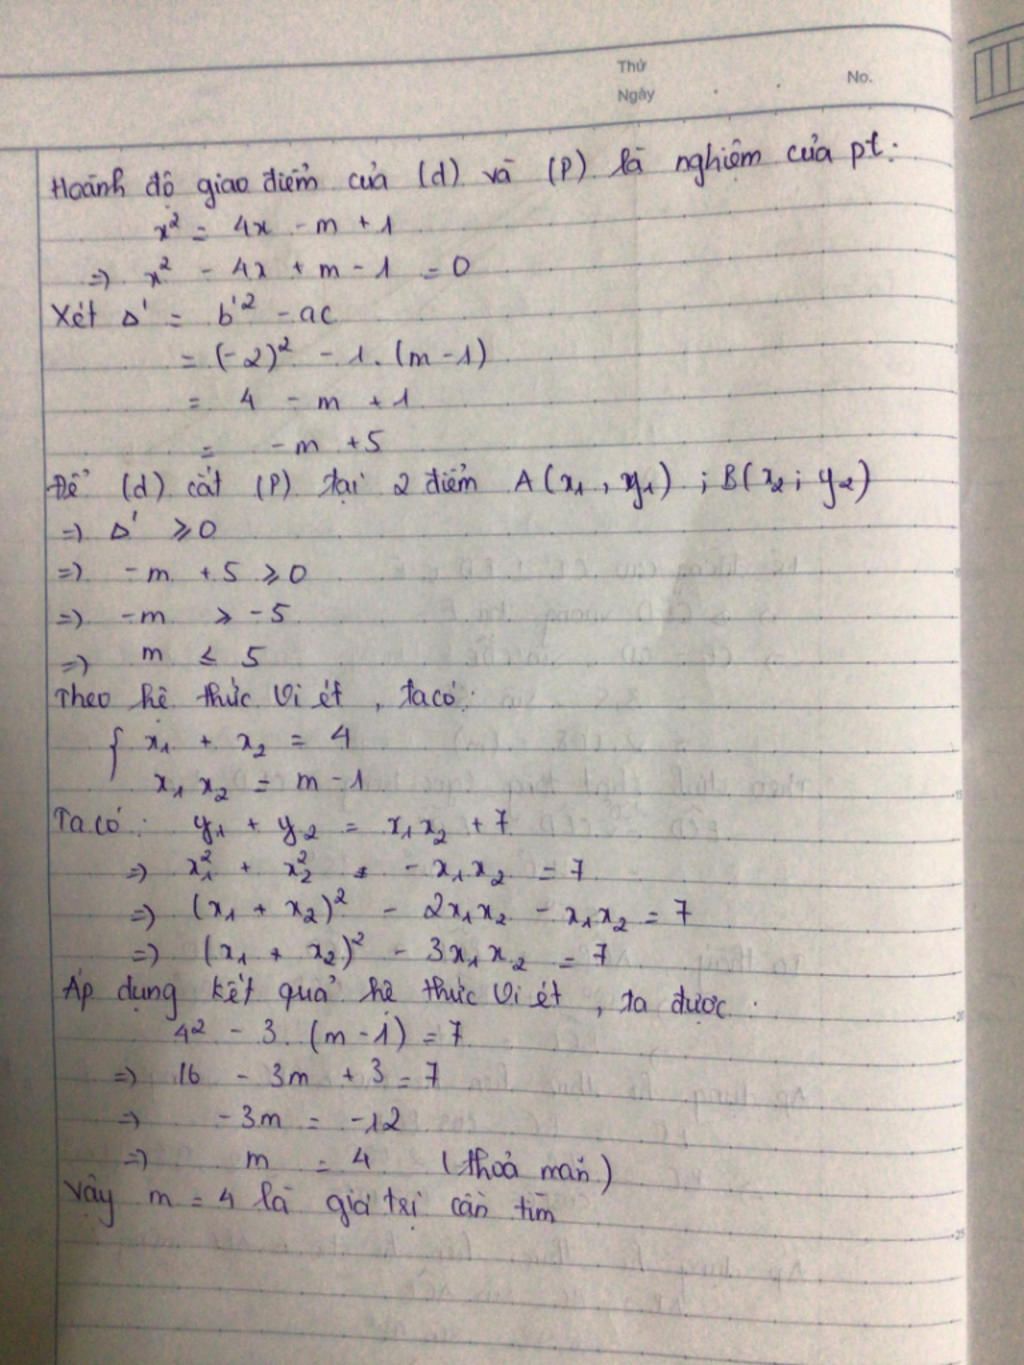 Thứ
Ngày
No.
Hoành độ giao điểm của (d) và (P) là nghiệm của pt:
x² = 4x - m + 1
=> x² - 4x + m - 1 = 0
Xét Δ' = b'² - ac
= (-2)² - 1.(m - 1)
= 4 - m + 1
= -m + 5
Để (d) cắt (P) tại 2 điểm A(x₁, y₁) ; B(x₂; y₂)
=> Δ' ≥ 0
=> -m + 5 ≥ 0
=> -m ≥ -5
=> m ≤ 5
Theo hệ thức Vi ét, ta có:
{ x₁ + x₂ = 4
x₁ x₂ = m - 1
Ta có: y₁ + y₂ = x₁x₂ + 7
=> x₁² + x₂² - x₁x₂ = 7
=> (x₁ + x₂)² - 2x₁x₂ - x₁x₂ = 7
=> (x₁ + x₂)² - 3x₁x₂ = 7
Áp dụng kết quả hệ thức Vi ét, ta được:
4² - 3.(m - 1) = 7
=> 16 - 3m + 3 = 7
=> -3m = -12
=> m = 4 (thoả mãn)
Vậy m = 4 là giá trị cần tìm